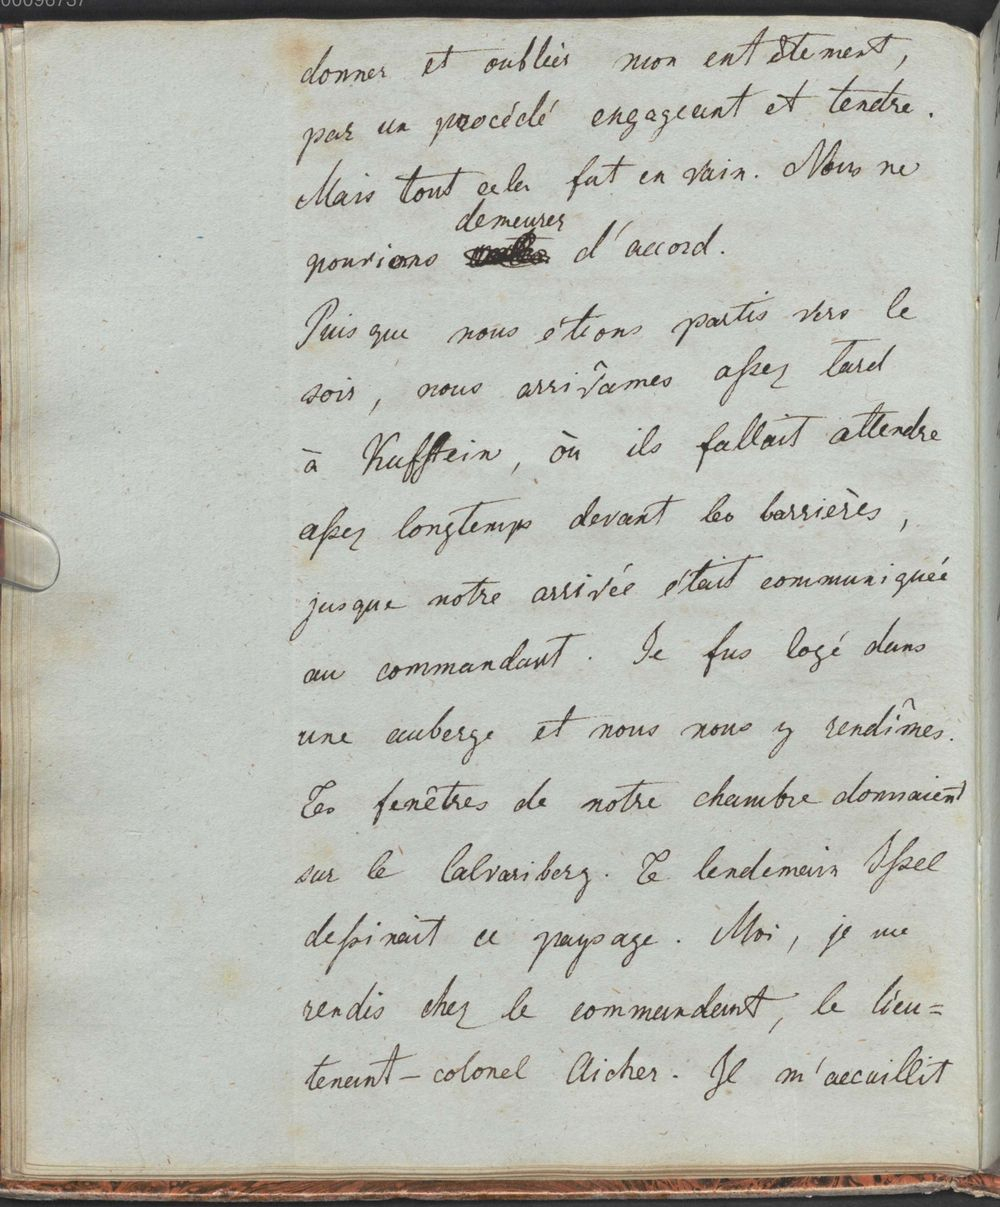 00096737
donner et oublier mon entêtement,
par un procédé engageant et tendre.
Mais tout cela fut en vain. Nous ne
demeurer
pourions d'accord.
Puisque nous étions partis vers le
soir, nous arrivâmes aſsez tard
à Kuffstein, où ils fallait attendre
aſsez longtemps devant les barrières,
jusque notre arrivée était communiquée
au commandant. Je fus logé dans
une auberge et nous nous y rendîmes.
Les fenêtres de notre chambre donnaient
sur le Calvariberg. Le lendemain Iſsel
deſsinait ce paysage. Moi, je me
rendis chez le commandant, le lieu=
tenant-colonel Aicher. Il m'accuillit